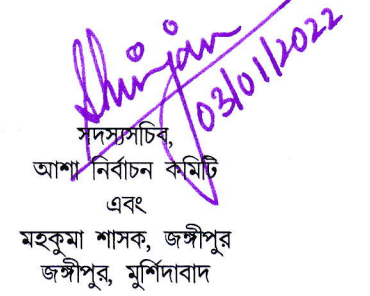 03/01/2022
সদস্যসচিব,
আশা নির্বাচন কমিটি
এবং
মহকুমা শাসক, জঙ্গীপুর
জঙ্গীপুর, মুর্শিদাবাদ